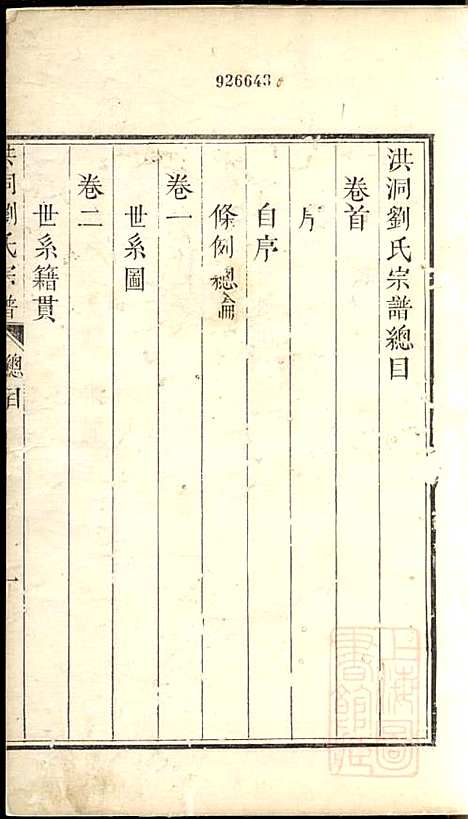 926643
洪洞劉氏宗譜總目
卷首
序
自序
條例總論
卷一
世系圖
卷二
世系籍貫
洪洞劉氏宗譜 總目 一
上海圖書館藏